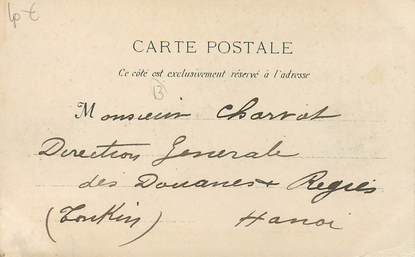 CARTE POSTALE
Ce côté est exclusivement réservé à l'adresse
B
Monsieur Charvat
Direction Generale
des Douanes & Regies
(Tonkin) Hanoi